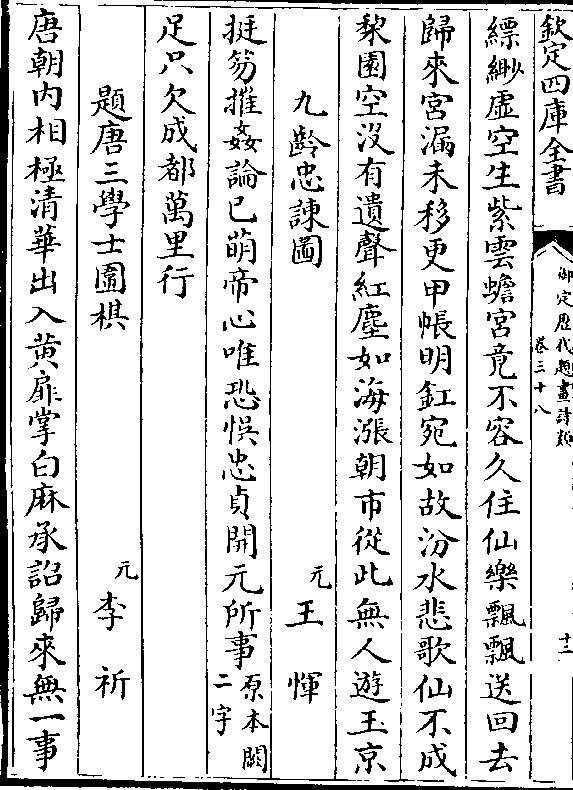 欽定四庫全書
御定歷代題畫詩類
卷三十八
十二
縹緲虛空生紫雲蟾宮竟不容久住仙樂飄飄送回去
歸來宮漏未移更甲帳明釭宛如故汾水悲歌仙不成
棃園空沒有遺聲紅塵如海漲朝市從此無人遊玉京
九齡忠諫圖
元
王惲
挺笏摧姦論已萌帝心唯恐悞忠貞開元所事
原本闕
二字
足只欠成都萬里行
題唐三學士圍棋
元
李祈
唐朝内相極清華出入黄扉掌白麻承詔歸來無一事